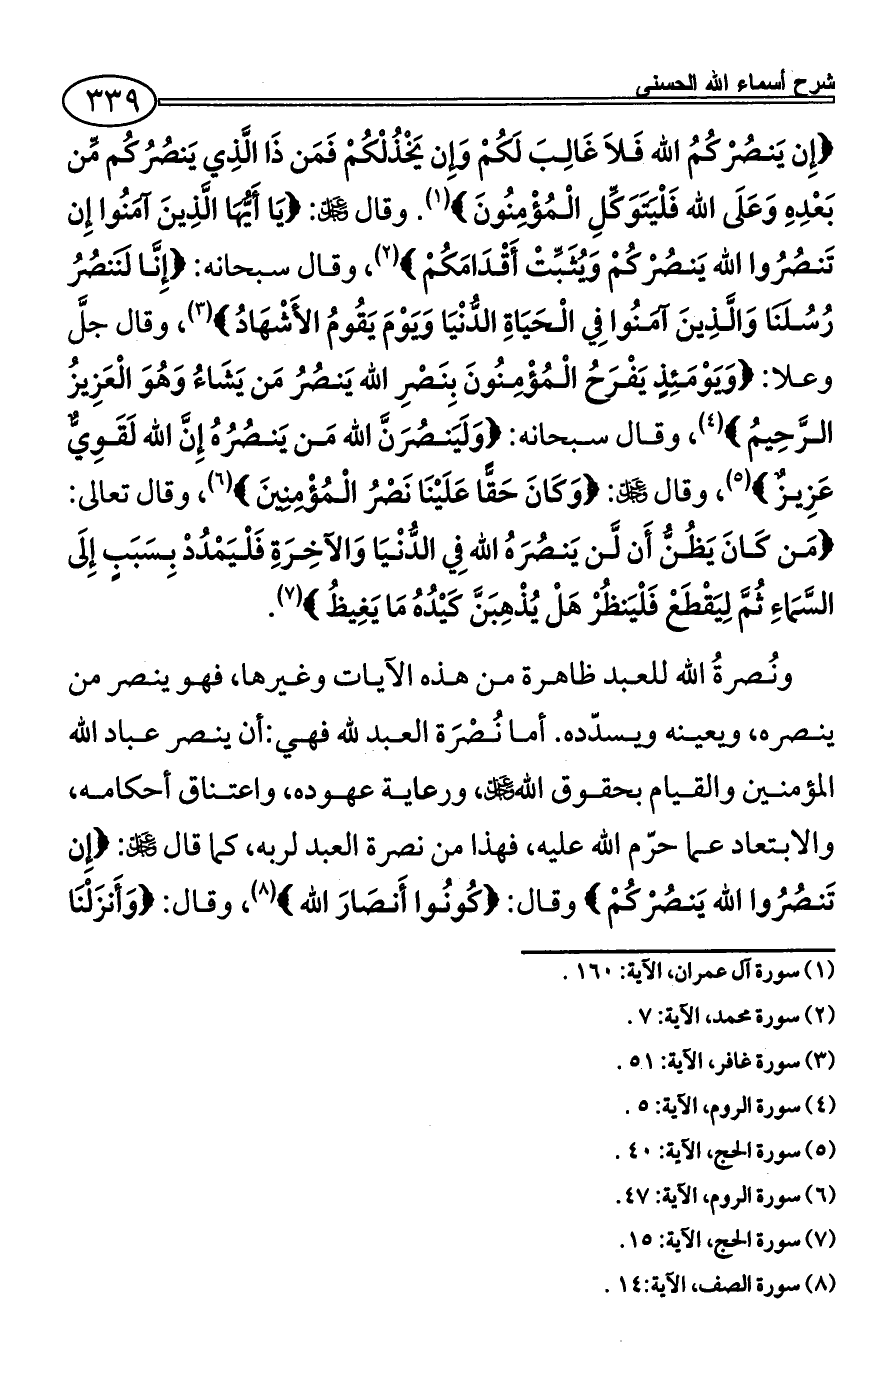 شرح أسماء الله الحسنى
٣٣٩
﴿إِن يَنصُرْكُمُ الله فَلاَ غَالِبَ لَكُمْ وَإِن يَخْذُلْكُمْ فَمَن ذَا الَّذِي يَنصُرُكُم مِّن
بَعْدِهِ وَعَلَى الله فَلْيَتَوَكِّلِ الْمُؤْمِنُونَ﴾(١). وقال ﷻ: ﴿يَا أَيُّهَا الَّذِينَ آمَنُوا إِن
تَنصُرُوا الله يَنصُرْكُمْ وَيُثَبِّتْ أَقْدَامَكُمْ﴾(٢)، وقال سبحانه: ﴿إِنَّا لَنَنصُرُ
رُسُلَنَا وَالَّذِينَ آمَنُوا فِي الْحَيَاةِ الدُّنْيَا وَيَوْمَ يَقُومُ الأَشْهَادُ﴾(٣)، وقال جلَّ
وعلا: ﴿وَيَوْمَئِذٍ يَفْرَحُ الْمُؤْمِنُونَ بِنَصْرِ الله يَنصُرُ مَن يَشَاءُ وَهُوَ الْعَزِيزُ
الرَّحِيمُ﴾(٤)، وقال سبحانه: ﴿وَلَيَنصُرَنَّ الله مَن يَنصُرُهُ إِنَّ الله لَقَوِيٌّ
عَزِيزٌ﴾(٥)، وقال ﷻ: ﴿وَكَانَ حَقًّا عَلَيْنَا نَصْرُ الْمُؤْمِنِينَ﴾(٦)، وقال تعالى:
﴿مَن كَانَ يَظُنُّ أَن لَّن يَنصُرَهُ الله فِي الدُّنْيَا وَالآخِرَةِ فَلْيَمْدُدْ بِسَبَبٍ إِلَى
السَّمَاءِ ثُمَّ لِيَقْطَعْ فَلْيَنظُرْ هَلْ يُذْهِبَنَّ كَيْدُهُ مَا يَغِيظُ﴾(٧).
ونُصرةُ الله للعبد ظاهرة من هذه الآيات وغيرها، فهو ينصر من
ينصره، ويعينه ويسدّده. أما نُصْرَة العبد لله فهي:أن ينصر عباد الله
المؤمنين والقيام بحقوق اللهﷻ، ورعاية عهوده، واعتناق أحكامه،
والابتعاد عما حرّم الله عليه، فهذا من نصرة العبد لربه، كما قال ﷻ: ﴿إِن
تَنصُرُوا الله يَنصُرْكُمْ﴾ وقال: ﴿كُونُوا أَنصَارَ الله﴾(٨)، وقال: ﴿وَأَنزَلْنَا
(١) سورة آل عمران، الآية: ١٦٠ .
(٢) سورة محمد، الآية: ٧ .
(٣) سورة غافر، الآية: ٥١ .
(٤) سورة الروم، الآية: ٥ .
(٥) سورة الحج، الآية: ٤٠ .
(٦) سورة الروم، الآية: ٤٧.
(٧) سورة الحج، الآية: ١٥.
(٨) سورة الصف، الآية:١٤ .